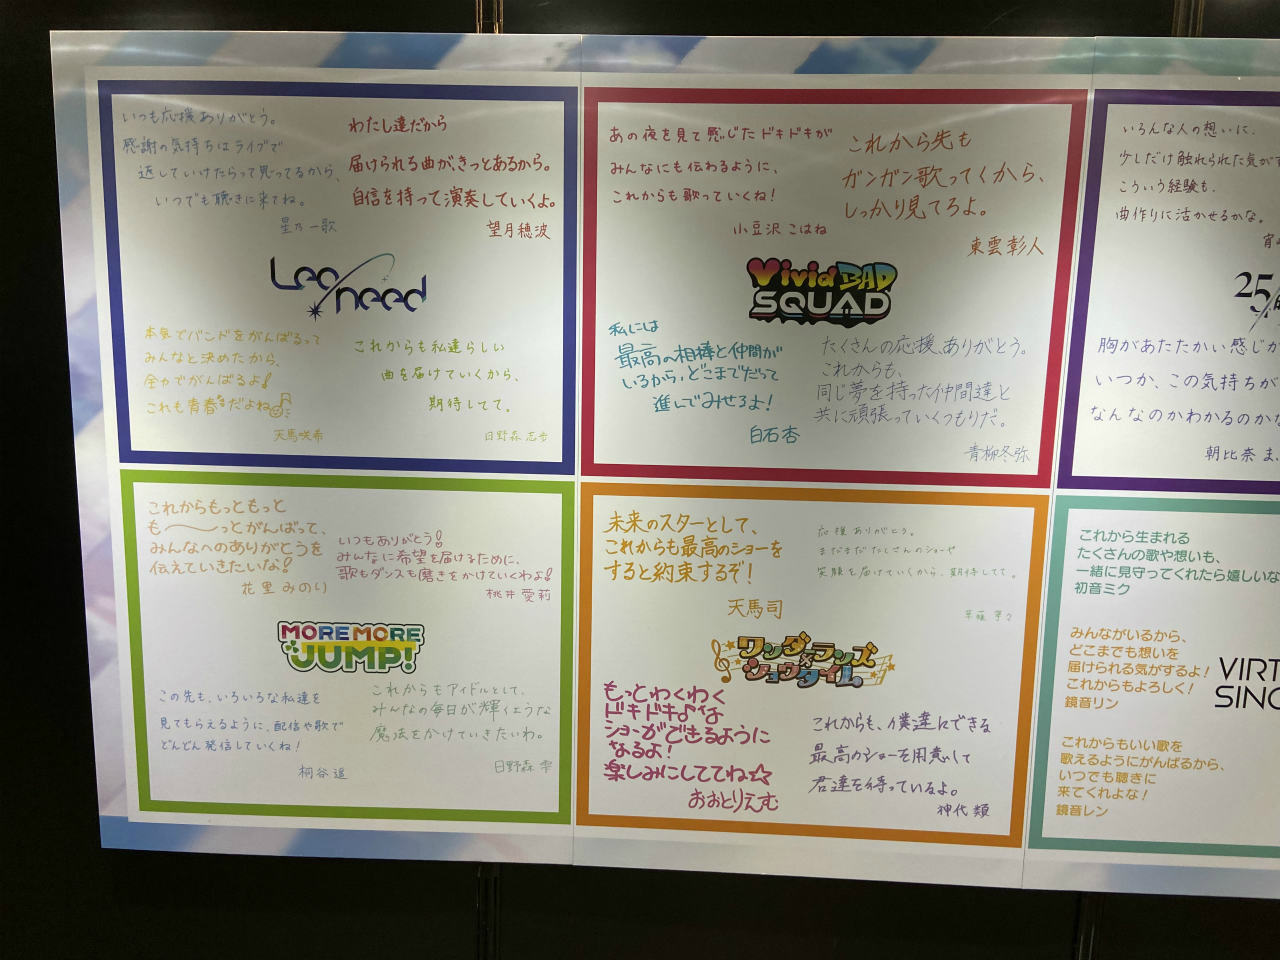 いつも応援ありがとう。
感謝の気持ちはライブで
返していけたらって思ってるから、
いつでも聴きに来てね。
星乃一歌
わたし達だから
届けられる曲が、きっとあるから。
自信を持って演奏していくよ。
望月穂波
Leo/need
本気でバンドをがんばるって
みんなと決めたから、
全力でがんばるよ!
これも青春だよね
天馬咲希
これからも私達らしい
曲を届けていくから、
期待してて。
日野森志歩
あの夜を見て感じたドキドキが
みんなにも伝わるように、
これからも歌っていくね!
小豆沢こはね
これから先も
ガンガン歌ってくから、
しっかり見てろよ。
東雲彰人
Vivid BAD
SQUAD
私には
最高の相棒と仲間が
いるから、どこまでだって
進んでみせるよ!
白石杏
たくさんの応援、ありがとう。
これからも、
同じ夢を持った仲間達と
共に頑張っていくつもりだ。
青柳冬弥
いろんな人の想いに、
少しだけ触れられた気がす
こういう経験も、
曲作りに活かせるかな。
宵
25
胸があたたかい感じが
いつか、この気持ちが
なんなのかわかるのかな
朝比奈ま
これからもっともっと
も〜〜っとがんばって、
みんなへのありがとうを
伝えていきたいな!
花里みのり
いつもありがとう!
みんなに希望を届けるために、
歌もダンスも磨きをかけていくわよ!
桃井愛莉
MORE MORE
JUMP!
この先も、いろいろな私達を
見てもらえるように、配信や歌で
どんどん発信していくね!
桐谷遥
これからもアイドルとして、
みんなの毎日が輝くような
魔法をかけていきたいわ。
日野森雫
未来のスターとして、
これからも最高のショーを
すると約束するぞ!
天馬司
応援ありがとう。
まだまだたくさんのショーや
笑顔を届けていくから、期待してて。
草薙寧々
ワンダーランズ
×
ショウタイム
もっとわくわく
ドキドキ♪な
ショーができるように
なるよ!
楽しみにしててね☆
おおとりえむ
これからも、僕達にできる
最高のショーを用意して
君達を待っているよ。
神代類
これから生まれる
たくさんの歌や想いも、
一緒に見守ってくれたら嬉しいな
初音ミク
みんながいるから、
どこまでも想いを
届けられる気がするよ!
これからもよろしく!
鏡音リン
VIRT
SING
これからもいい歌を
歌えるようにがんばるから、
いつでも聴きに
来てくれよな!
鏡音レン